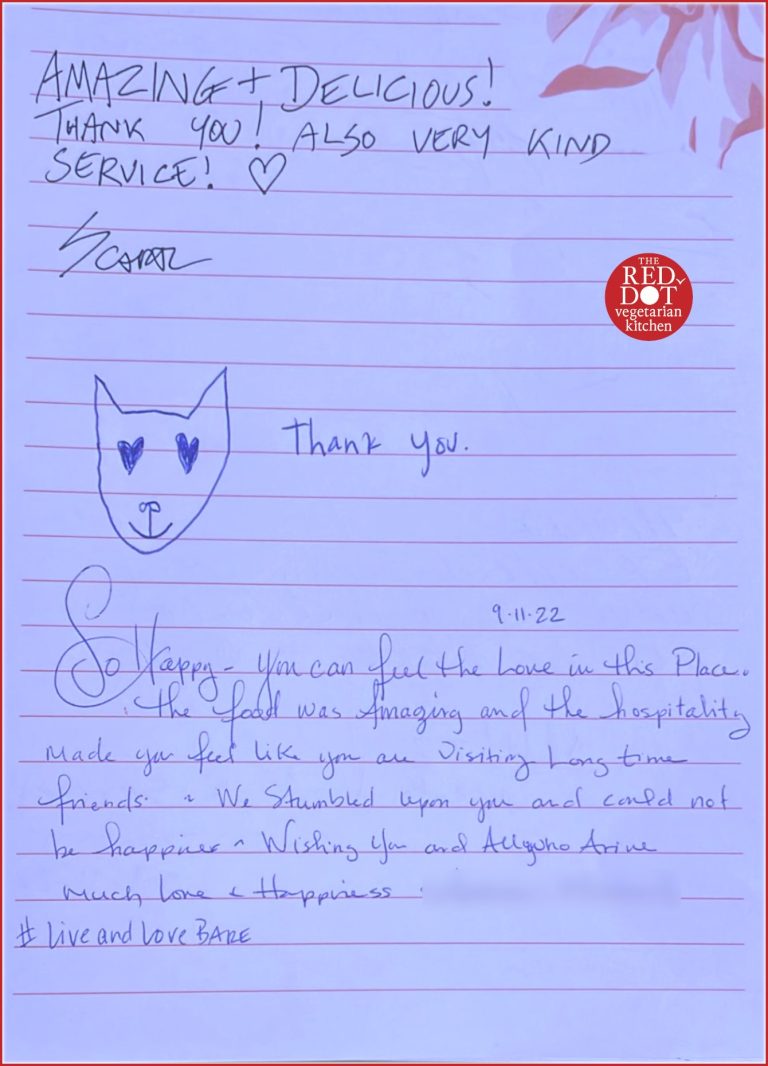 AMAZING + DELICIOUS!
THANK YOU! ALSO VERY KIND
SERVICE! ♡
THE
RED
DOT
vegetarian
kitchen
Thank you.
9.11.22
So Happy - You can feel the Love in this Place.
The food was Amazing and the hospitality
made you feel like you are Visiting Long time
friends. We Stumbled upon you and could not
be happier ~ Wishing You and All who Arive
much Love & Happiness
# Live and Love BARE